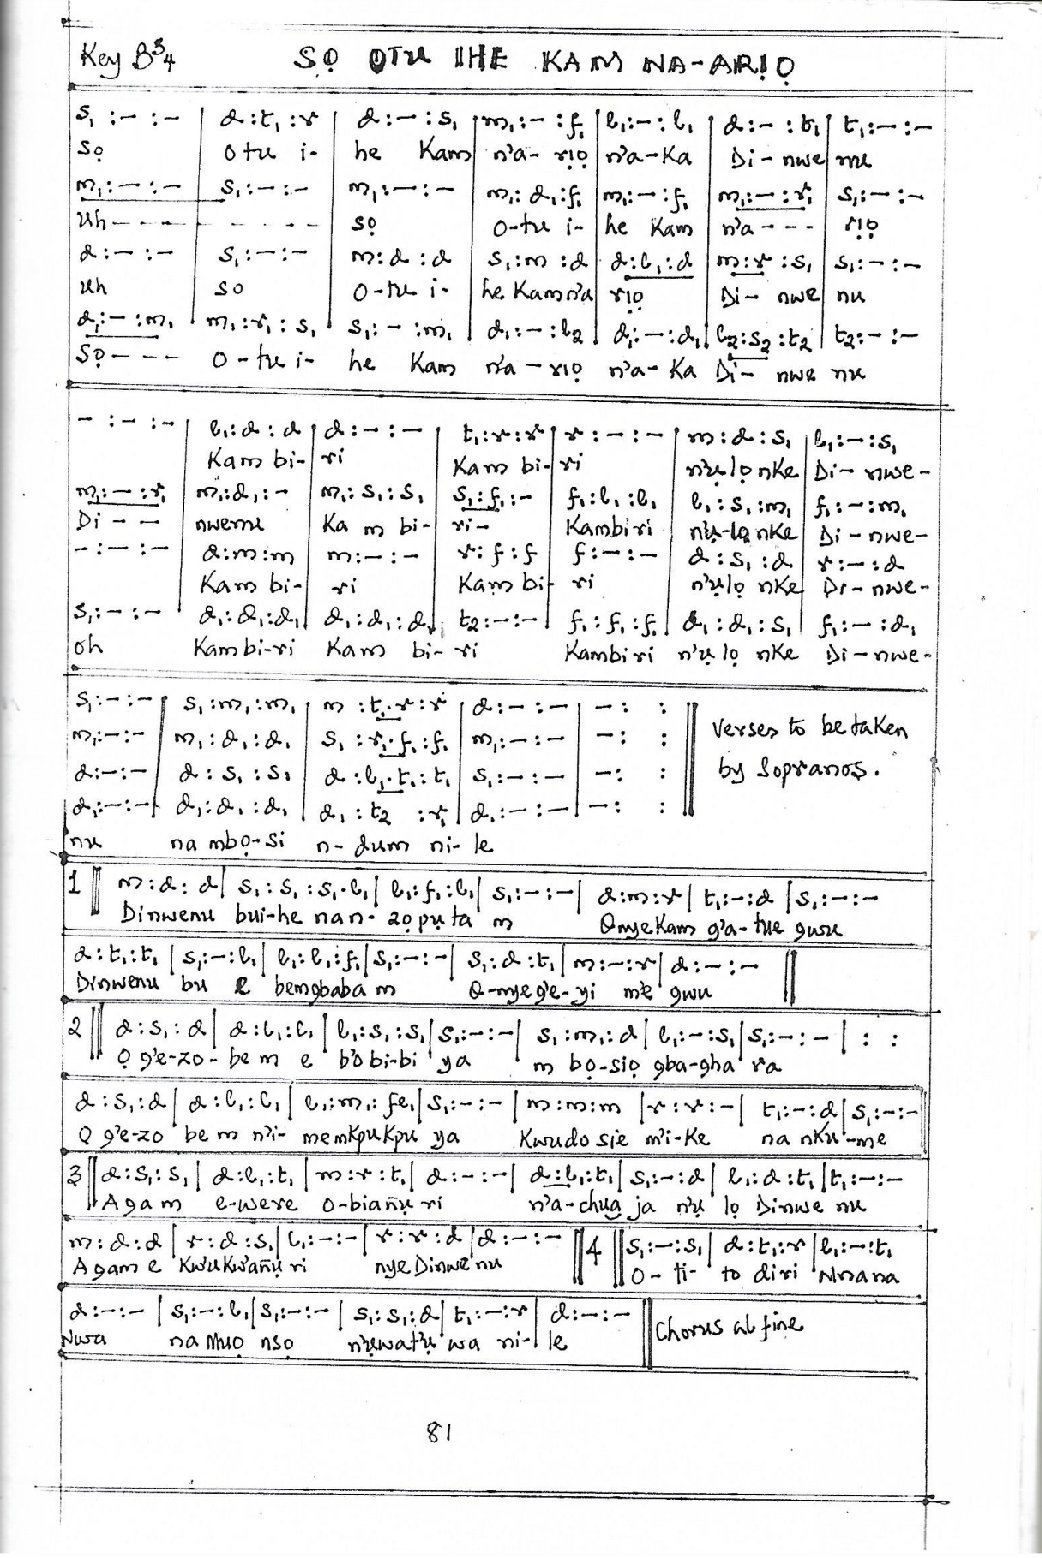 Key B 3/4 SỌ OTU IHE KAM NA-ARỊỌ
s₁ :– :– | d :t₁ :r | d :– :s₁ | m₁ :– :f₁ | l₁ :– :l₁ | d :– :t₁ | t₁ :– :–
Sọ Otu i- he Kam n'a- rịọ n'a-Ka Di- nwe nu
m₁ :– :– | s₁ :– :– | m₁ :– :– | m₁ :d₁ :f₁ | m₁ :– :f₁ | m₁ :– :r₁ | s₁ :– :–
Uh - - - - - - - sọ O-tu i- he Kam n'a - - - rịọ
d :– :– | s₁ :– :– | m :d :d | s₁ :m :d | d :l₁ :d | m :r :s₁ | s₁ :– :–
uh sọ O-tu i- he Kam n'a rịọ Di- nwe nu
d₁ :– :m₁ | m₁ :r₁ :s₁ | s₁ :– :m₁ | d₁ :– :l₂ | d₁ :– :d₁ | l₂ :s₂ :t₂ | t₂ :– :–
Sọ - - - O-tu i- he Kam n'a-rịọ n'a-Ka Di- nwe nu
– :– :– | l₁ :d :d | d :– :– | t₁ :r :r | r :– :– | m :d :s₁ | l₁ :– :s₁
Kam bi- ri Kam bi- ri n'ụlọ nKe Di- nwe-
m₁ :– :r₁ | m₁ :d₁ :– | m₁ :s₁ :s₁ | s₁ :f₁ :– | f₁ :l₁ :l₁ | l₁ :s₁ :m₁ | f₁ :– :m₁
Di - - nwenu Ka m bi- ri- Kambiri n'ụ-lọ nKe Di-nwe-
– :– :– | d :m :m | m :– :– | r :f :f | f :– :– | d :s₁ :d | r :– :d
Kam bi- ri Kam bi- ri n'ụlọ nKe Di-nwe-
s₁ :– :– | d₁ :d₁ :d₁ | d₁ :d₁ :d₁ | t₂ :– :– | f₁ :f₁ :f₁ | d₁ :d₁ :s₁ | f₁ :– :d₁
oh Kambi-ri Kam bi- ri Kambiri n'ụ lọ nKe Di-nwe-
s₁ :– :– | s₁ :m₁ :m₁ | m :t₁.r :r | d :– :– | – : : || Verses to be taken
m₁ :– :– | m₁ :d₁ :d₁ | s₁ :r₁.f₁ :f₁ | m₁ :– :– | – : : || by Sopranos.
d :– :– | d :s₁ :s₁ | d :l₁.t₁ :t₁ | s₁ :– :– | – : : ||
d₁ :– :– | d₁ :d₁ :d₁ | d₁ :t₂ :r₁ | d₁ :– :– | – : : ||
nu na mbọ-si n-dum ni-le
1 || m :d :d | s₁ :s₁ :s₁.l₁ | l₁ :f₁ :l₁ | s₁ :– :– | d :m :r | t₁ :– :d | s₁ :– :–
Dinwenu bui-he nan-zọpụta m Onye Kam g'a-tue gusu
d :t₁ :t₁ | s₁ :– :l₁ | l₁ :l₁ :f₁ | s₁ :– :– | s₁ :d :t₁ | m :– :r | d :– :– ||
Dinwenu bu E bemgbaba m O-nye g'e-yi m'e gwu
2 || d :s₁ :d | d :l₁ :l₁ | l₁ :s₁ :s₁ | s₁ :– :– | s₁ :m₁ :d | l₁ :– :s₁ | s₁ :– :– | : :
O g'e-zo-be m e b'ọ bi-bi ya m bọ-siọ gba-gha ra
d :s₁ :d | d :l₁ :l₁ | l₁ :m₁ :fe₁ | s₁ :– :– | m :m :m | r :r :– | t₁ :– :d | s₁ :– :–
O g'e-zo be m n'i- memkpukpu ya Kwudo sie m'i-Ke na nKu'-me
3 || d :s₁ :s₁ | d :l₁ :t₁ | m :r :t₁ | d :– :– | d :l₁ :t₁ | s₁ :– :d | l₁ :d :t₁ | t₁ :– :–
Agam e-were o-biañụ ri n'a-chụg ja n'ụ lọ Dinwe nu
m :d :d | r :d :s₁ | l₁ :– :– | r :r :d | d :– :– || 4 || s₁ :– :s₁ | d :t₁ :r | l₁ :– :t₁
Agam e Kwu Kw'añụ ri nye Dinwe nu O- ti- to diri Nnana
d :– :– | s₁ :– :l₁ | s₁ :– :– | s₁ :s₁ :d | t₁ :– :r | d :– :– || Chorus al fine
Nwa na Mụọ nsọ n'ụwat'ụ wa ni- le
81